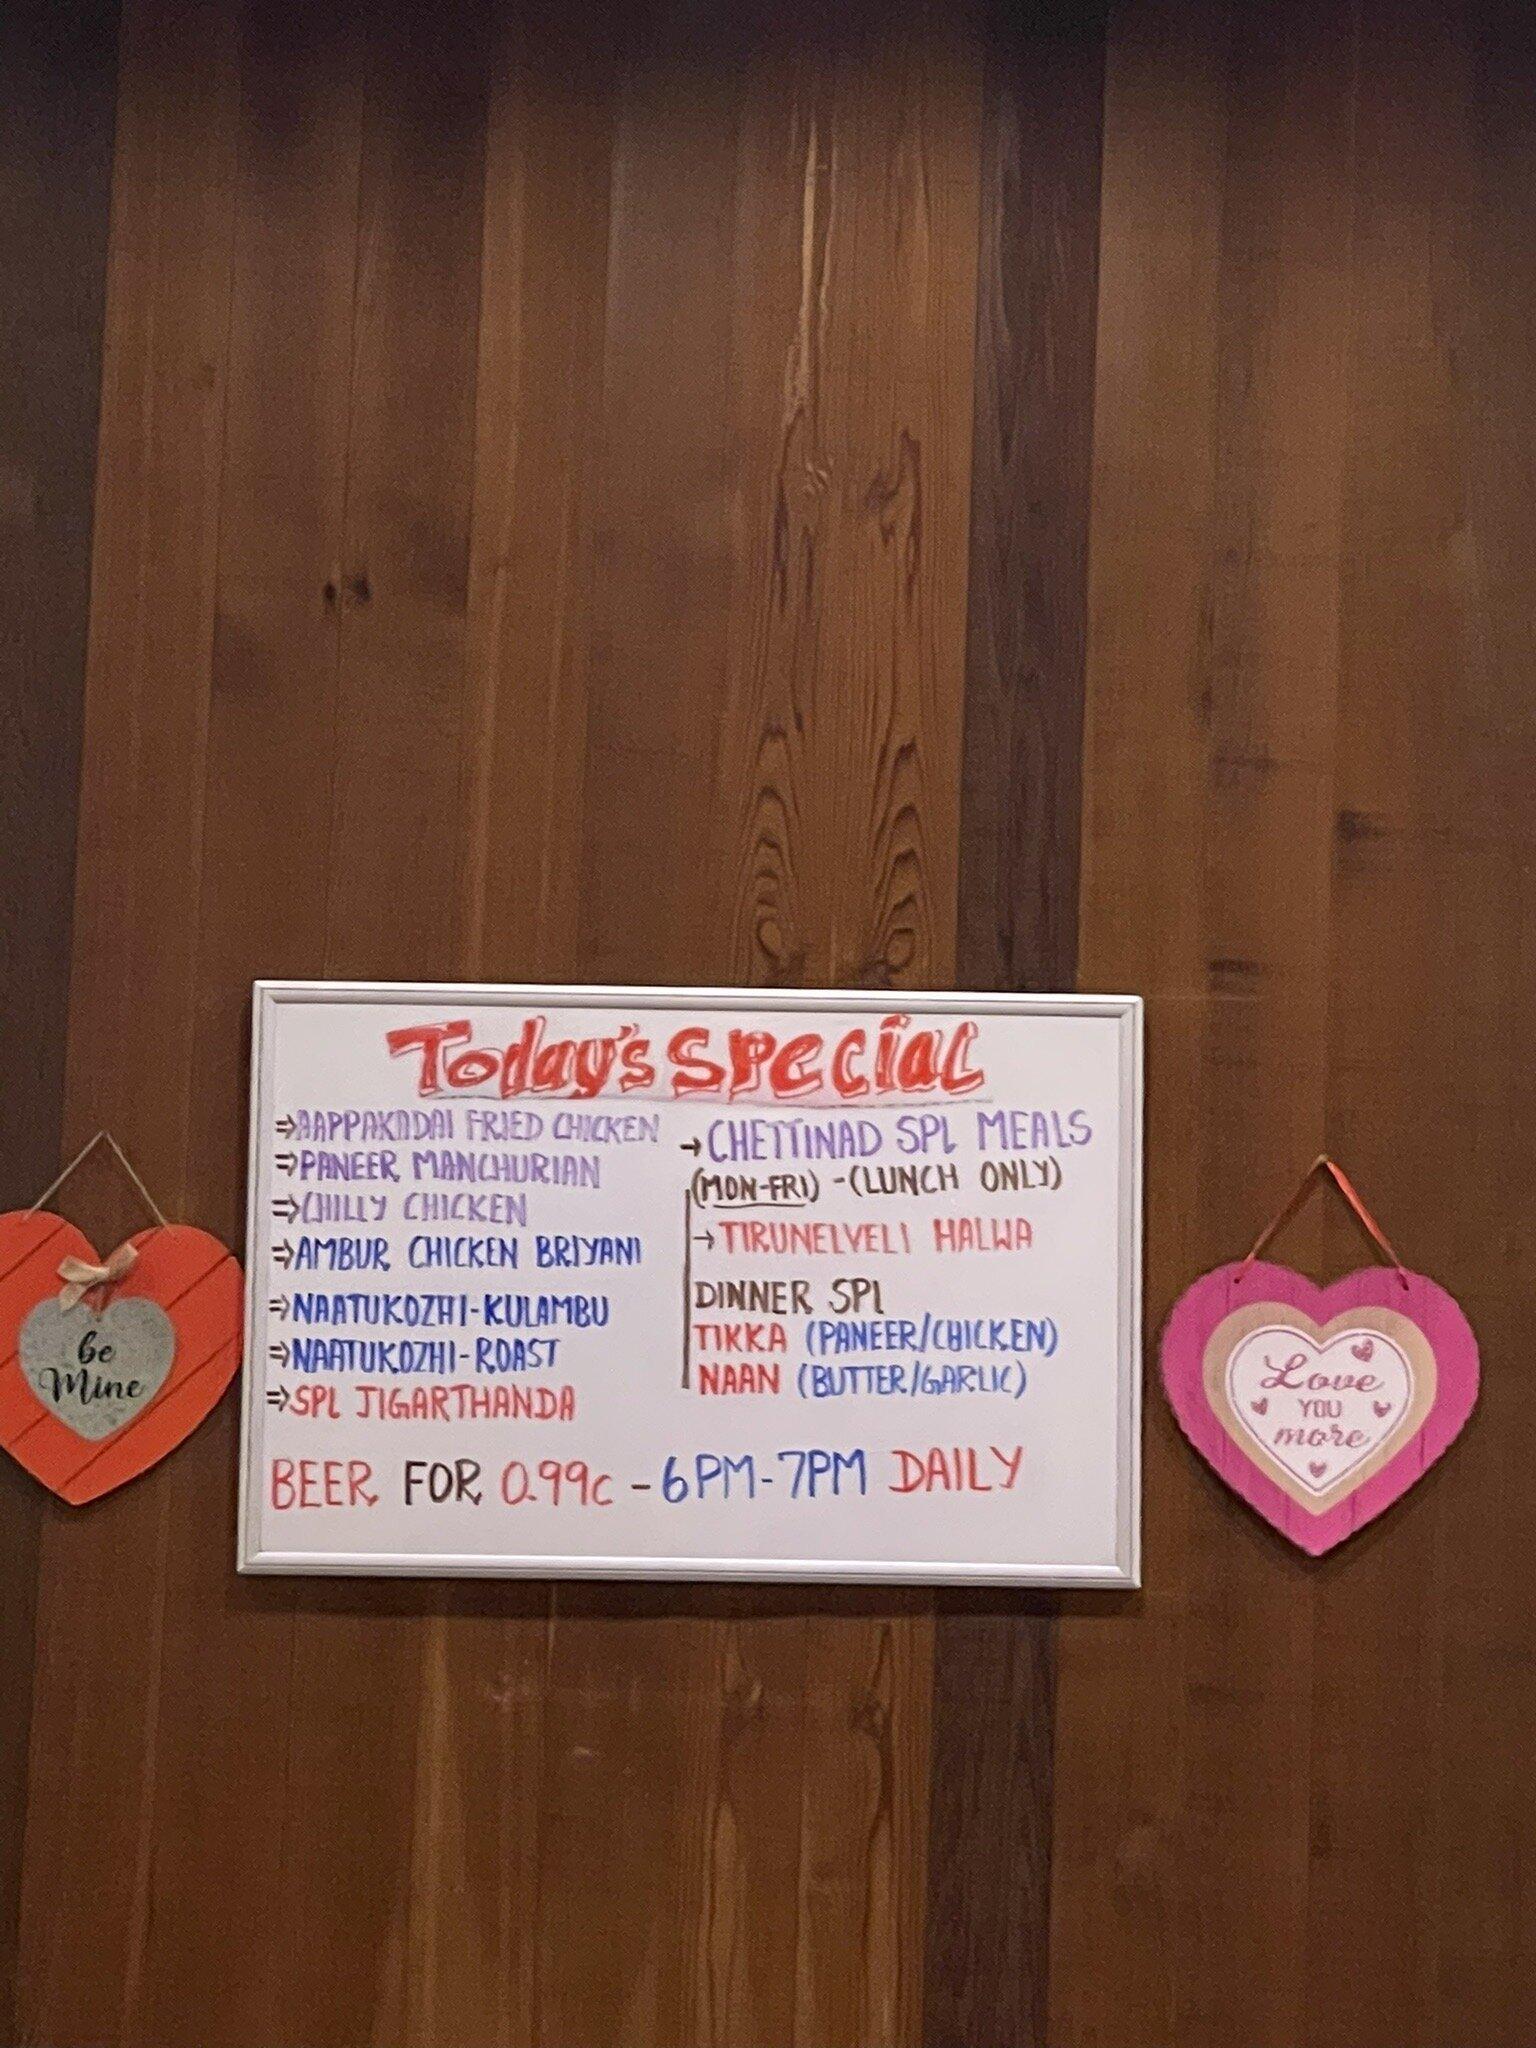 Today's Special
⇒AAPPAKADAI FRIED CHICKEN
⇒PANEER MANCHURIAN
⇒CHILLY CHICKEN
⇒AMBUR CHICKEN BRIYANI
⇒NAATUKOZHI-KULAMBU
⇒NAATUKOZHI-ROAST
⇒SPL JIGARTHANDA
→CHETTINAD SPL MEALS
(MON-FRI) - (LUNCH ONLY)
→TIRUNELVELI HALWA
DINNER SPL
TIKKA (PANEER/CHICKEN)
NAAN (BUTTER/GARLIC)
BEER FOR 0.99c - 6PM-7PM DAILY
be
Mine
Love
YOU
more